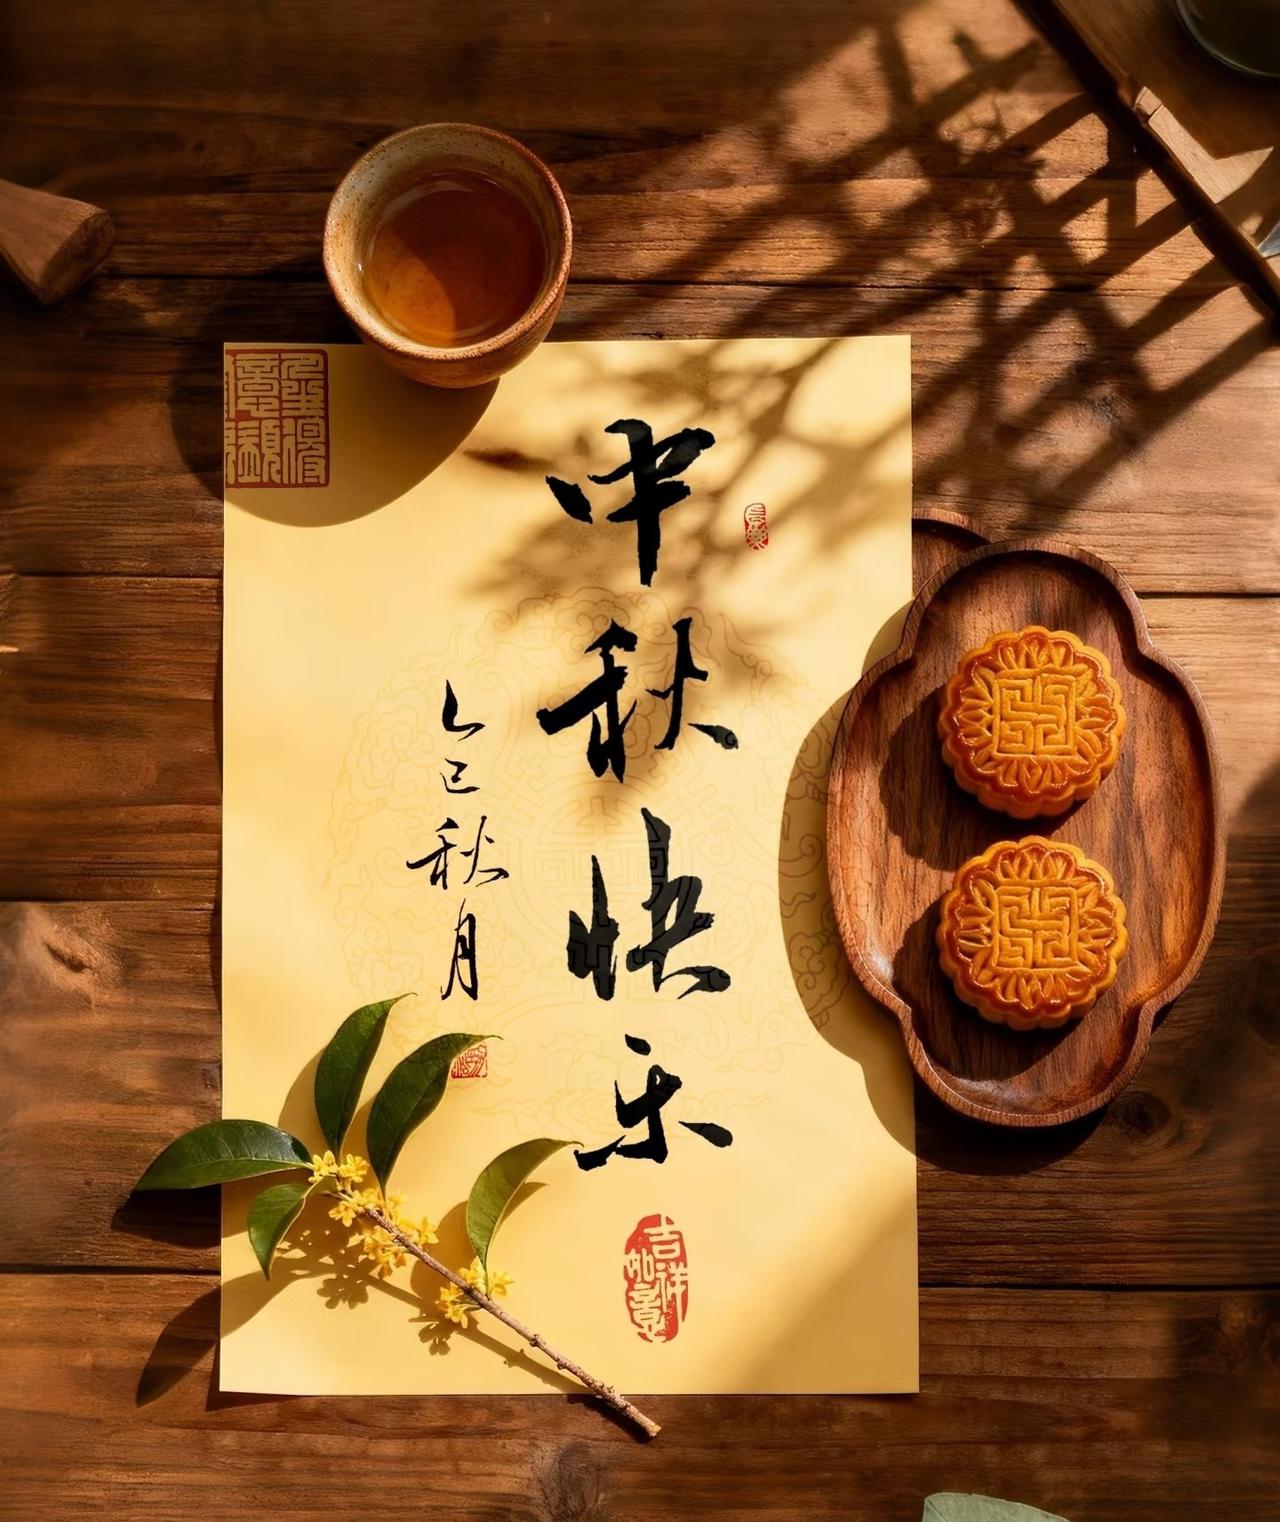 中秋快乐
乙巳秋月
吉祥
如意